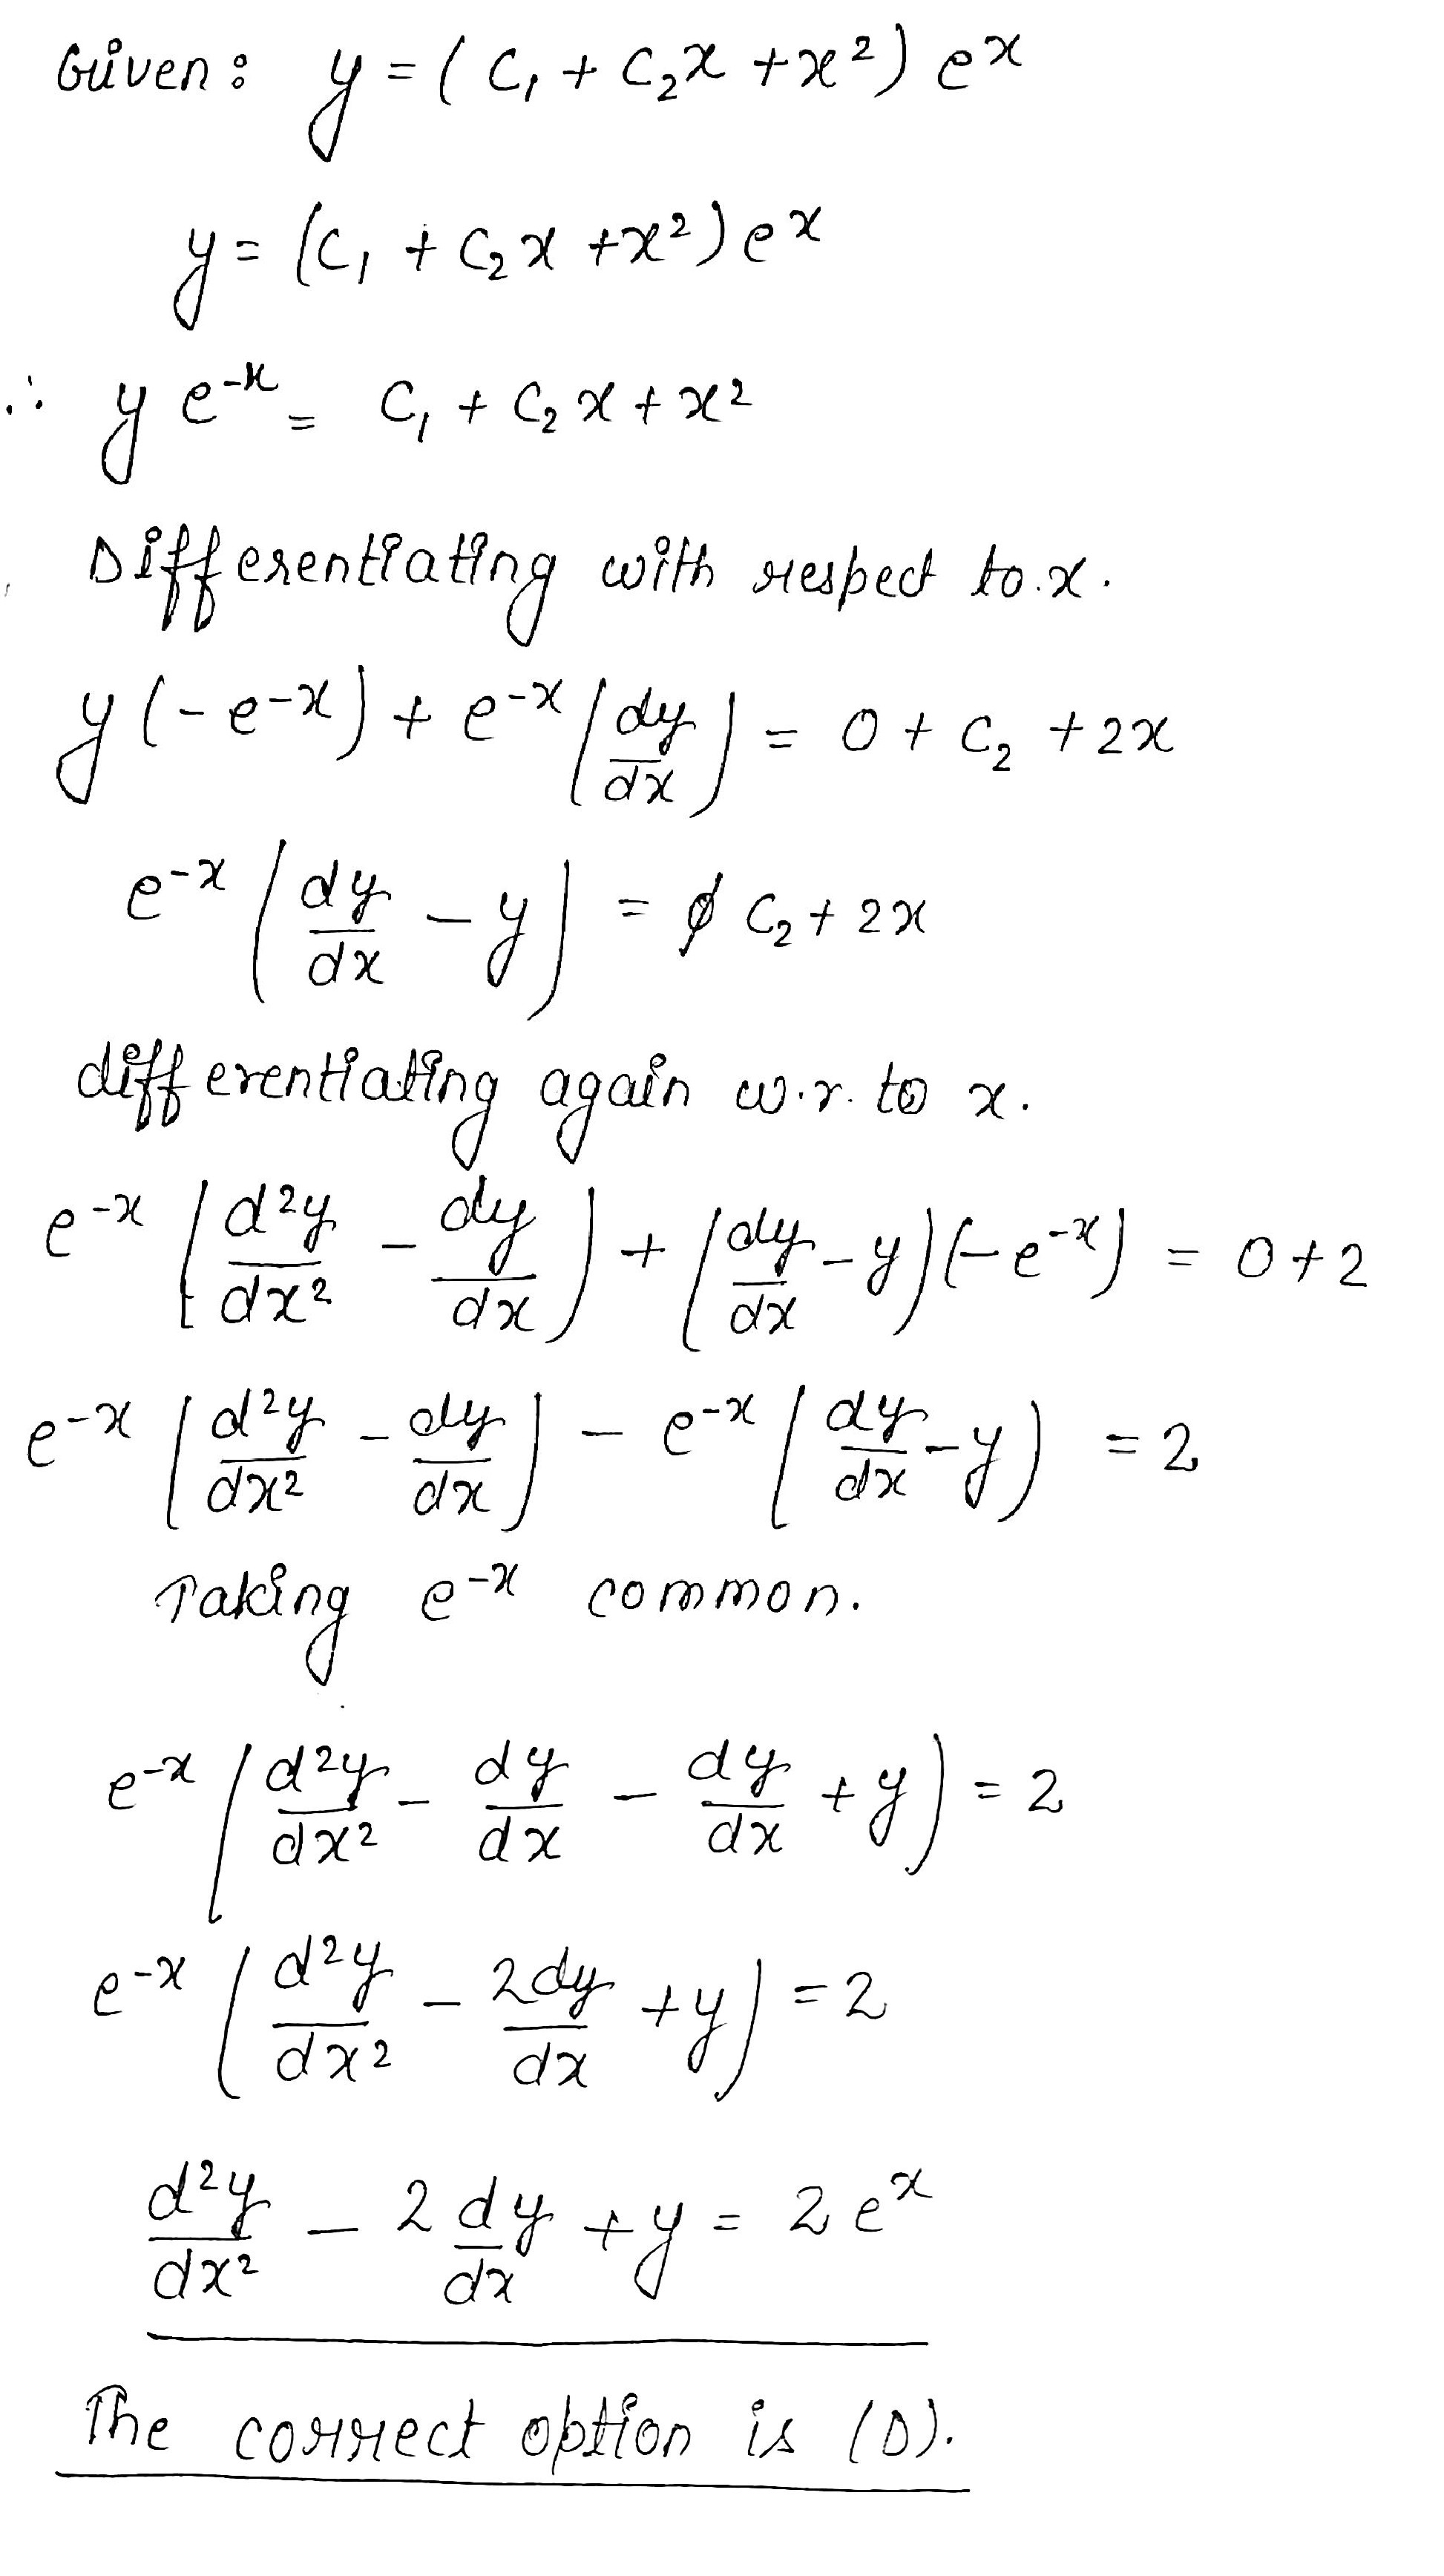 Given: y = (C₁ + C₂x + x²) eˣ
y = (C₁ + C₂x + x²) eˣ
∴ y e⁻ˣ = C₁ + C₂x + x²
Differentiating with respect to x.
y(-e⁻ˣ) + e⁻ˣ (dy/dx) = 0 + C₂ + 2x
e⁻ˣ (dy/dx - y) = C₂ + 2x
differentiating again w.r. to x.
e⁻ˣ (d²y/dx² - dy/dx) + (dy/dx - y)(-e⁻ˣ) = 0 + 2
e⁻ˣ (d²y/dx² - dy/dx) - e⁻ˣ (dy/dx - y) = 2
Taking e⁻ˣ common.
e⁻ˣ (d²y/dx² - dy/dx - dy/dx + y) = 2
e⁻ˣ (d²y/dx² - 2dy/dx + y) = 2
d²y/dx² - 2 dy/dx + y = 2 eˣ
The correct option is (D).